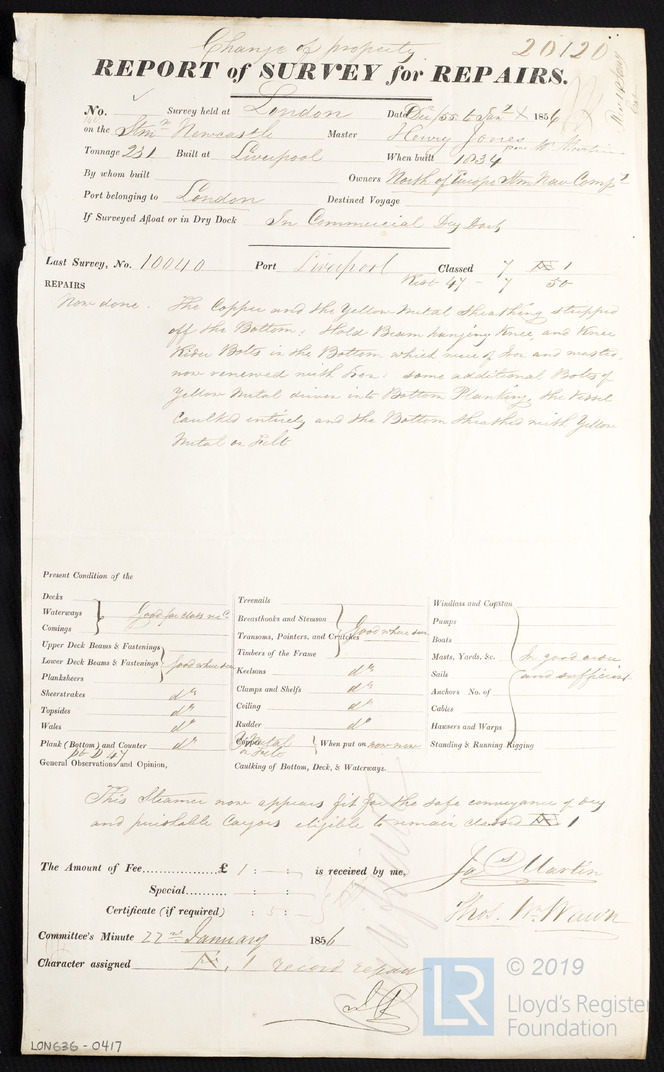 Change of property
20120
REPORT of SURVEY for REPAIRS.
No. Survey held at London Date Dec/55 to Jany 1856
on the Stmr Newcastle Master Henry Jones
Tonnage 231 Built at Liverpool When built 1834
By whom built Owners North of Europe Stm Nav Compy
Port belonging to London Destined Voyage
If Surveyed Afloat or in Dry Dock In Commercial Dry Dock
Last Survey, No. 10040 Port Liverpool Classed 1
47 - 7 50
REPAIRS
Now done. The Copper and the Yellow Metal Sheathing stripped
off the Bottom; Hold Beam hanging Knee, and Knee
Rider Bolts in the Bottom which were of Iron and wasted,
now renewed with Iron: some additional Bolts of
Yellow Metal driven into Bottom Planking, the Vessel
Caulked entirely and the Bottom Sheathed with Yellow
Metal on Felt
Present Condition of the
Decks
Waterways Good for class
Comings
Upper Deck Beams & Fastenings
Lower Deck Beams & Fastenings good where seen
Planksheers
Sheerstrakes do
Topsides do
Wales do
Plank (Bottom) and Counter do
pt D 47
General Observations and Opinion,
Treenails
Breasthooks and Stemson
Transoms, Pointers, and Crutches Good where seen
Timbers of the Frame
Keelsons do
Clamps and Shelfs do
Ceiling do
Rudder do
Copper Y Metal on Felt When put on now new
Caulking of Bottom, Deck, & Waterways.
Windlass and Capstan
Pumps
Boats
Masts, Yards, &c. In good order
Sails and sufficient
Anchors No. of
Cables
Hausers and Warps
Standing & Running Rigging
This Steamer now appears fit for the safe conveyance of dry
and perishable Cargoes eligible to remain classed 1
The Amount of Fee £ 1 : - : - is received by me,
Jas Martin
Special : :
Certificate (if required) : 5 : -
Thos. Wm Wawn
Committee's Minute 22nd January 1856
Character assigned 1 record repairs
© 2019
LR Lloyd's Register
Foundation
LON636-0417